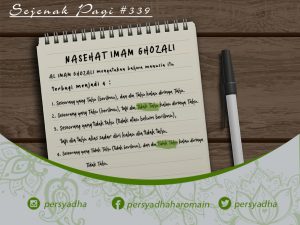 Sejenak Pagi #339
NASEHAT IMAM GHOZALI
AL IMAM GHOZALI mengatakan bahwa manusia itu
Terbagi menjadi 4 :
1. Seseorang yang Tahu (berilmu), dan dia Tahu kalau dirinya Tahu.
2. Seseorang yang Tahu (berilmu), tapi dia Tidak Tahu kalau dirinya
Tahu.
3. Seseorang yang Tidak Tahu (tidak atau belum berilmu),
tapi dia tahu alias sadar diri kalau dia Tidak Tahu.
4. Seseorang yang Tidak Tahu (tidak berilmu), dan dia Tidak Tahu kalau dirinya
Tidak Tahu.
persyadha
persyadhaharomain
persyadha